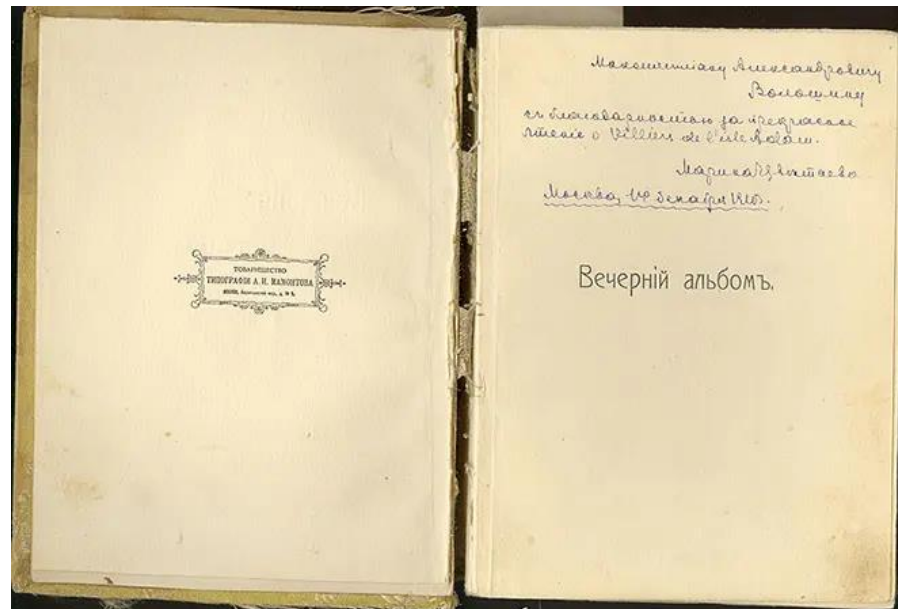 ТОВАРИЩЕСТВО
ТИПОГРАФІИ А. И. МАМОНТОВА
Максимиліану Александровичу
Волошину
съ благодарностью за прекрасное
чтеніе о Villiers de l'isle Adam.
Марина Цвѣтаева
Москва, 1 декабря 1910г.
Вечерній альбомъ.